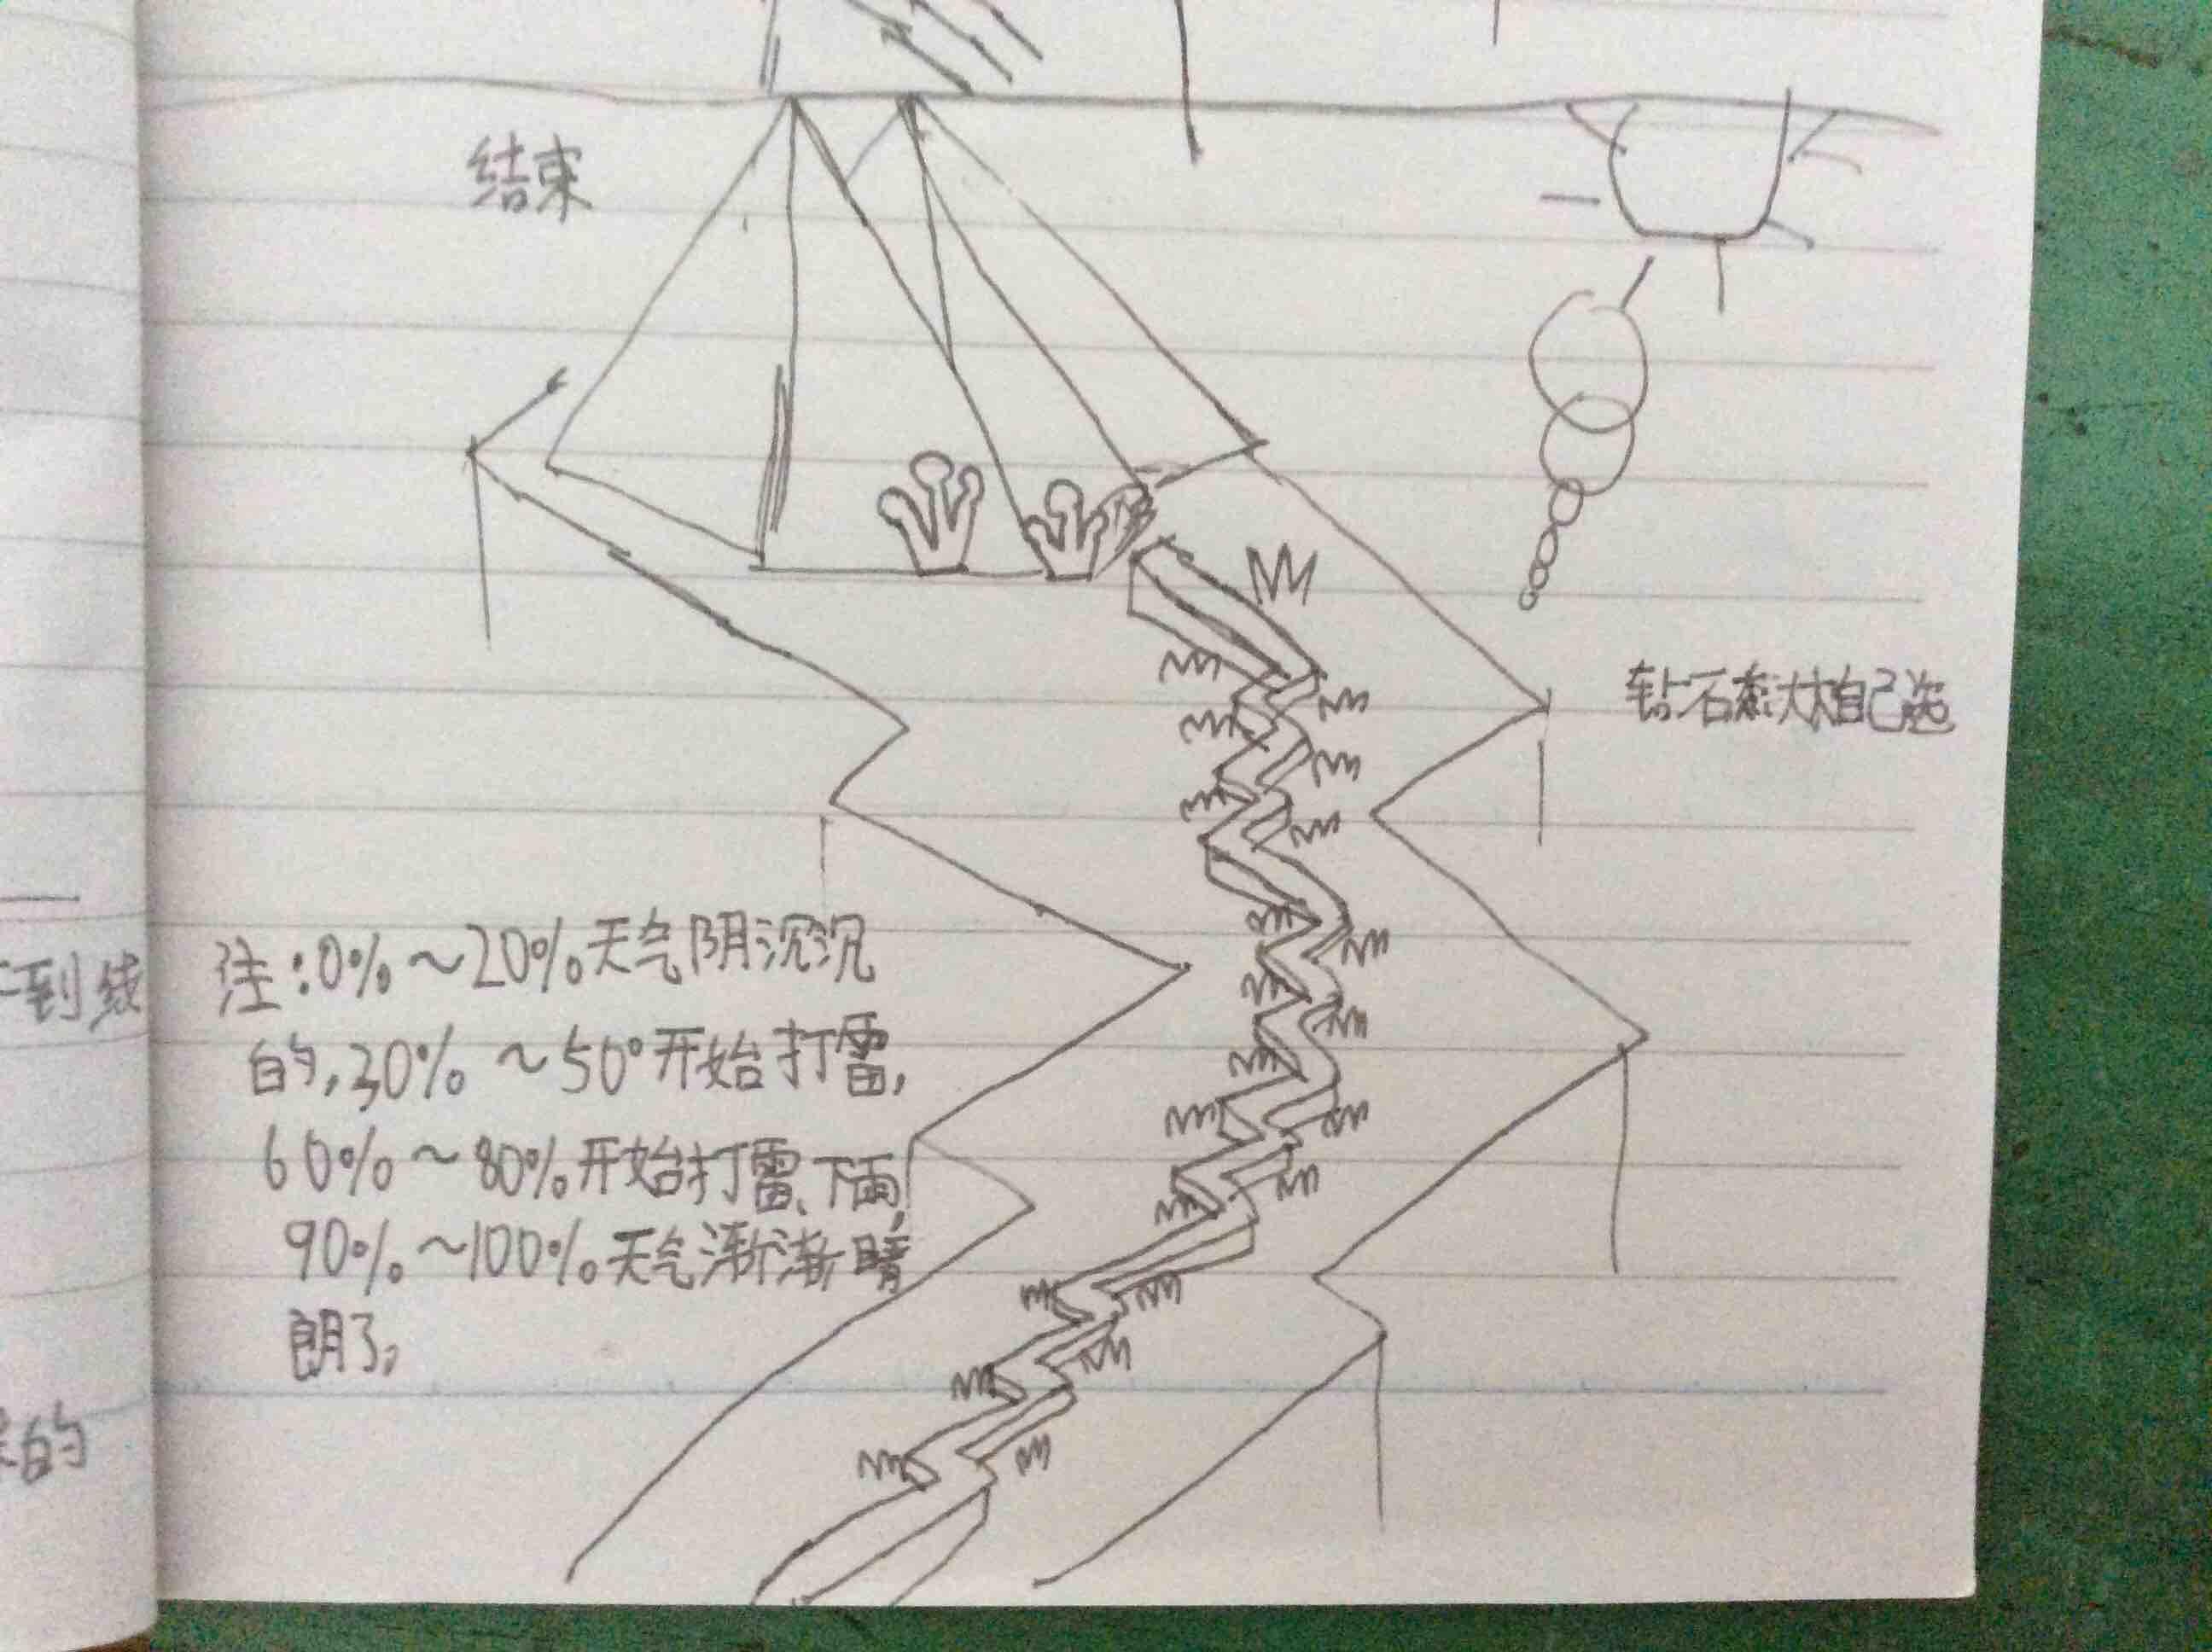 结束
钻石太大自己选
注:0%～20%天气阴沉沉
的,30%～50°开始打雷,
60%～80%开始打雷、下雨,
90%～100%天气渐渐晴
朗了。
到线
的